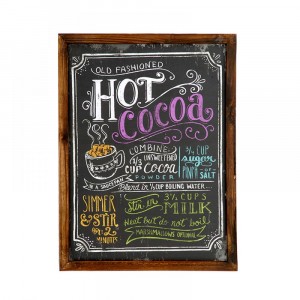 OLD FASHIONED
HOT
COCOA
COMBINE
UNSWEETENED
COCOA
POWDER
IN A SAUCEPAN
3/4 CUP
sugar
PINCH OF
SALT
Blend in 1/3 CUP BOILING WATER
SIMMER
& STIR
FOR 2
MINUTES
Stir in 3 1/2 CUPS
MILK
Heat but do not boil
MARSHMALLOWS OPTIONAL